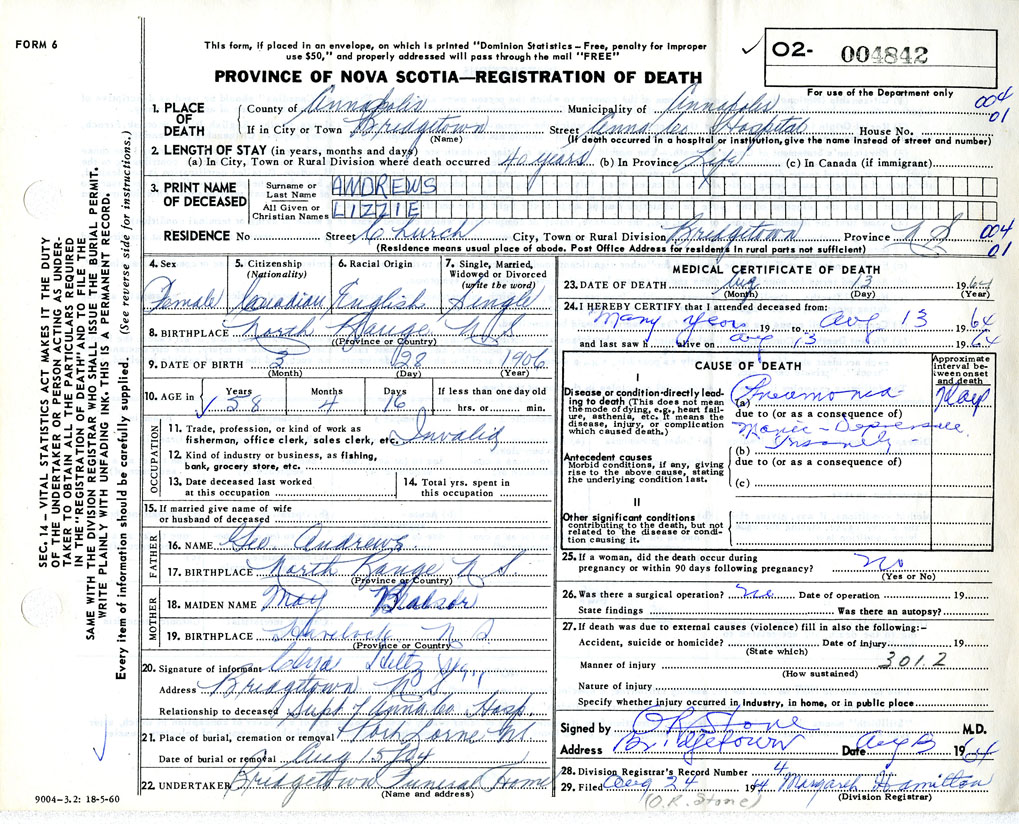 FORM 6
This form, if placed in an envelope, on which is printed "Dominion Statistics – Free, penalty for improper
use $50," and properly addressed will pass through the mail "FREE"
PROVINCE OF NOVA SCOTIA—REGISTRATION OF DEATH
✓ O2- 004842
For use of the Department only
004
01
1. PLACE OF DEATH
County of Annapolis Municipality of Annapolis
If in City or Town Bridgetown Street Anna Co Hospital House No.
(Name) (If death occurred in a hospital or institution, give the name instead of street and number)
2. LENGTH OF STAY (in years, months and days)
(a) In City, Town or Rural Division where death occurred 40 years (b) In Province Life (c) In Canada (if immigrant)
3. PRINT NAME OF DECEASED
Surname or Last Name ANDREWS
All Given or Christian Names LIZZIE
RESIDENCE No Street Church City, Town or Rural Division Bridgetown Province N S
004
01
(Residence means usual place of abode. Post Office Address for residents in rural parts not sufficient)
4. Sex Female
5. Citizenship (Nationality) Canadian
6. Racial Origin English
7. Single, Married, Widowed or Divorced (write the word) Single
8. BIRTHPLACE North Range N S
(Province or Country)
9. DATE OF BIRTH 3 28 1906
(Month) (Day) (Year)
10. AGE in Years 58 Months 4 Days 16 If less than one day old hrs. or min.
OCCUPATION
11. Trade, profession, or kind of work as
fisherman, office clerk, sales clerk, etc. Invalid
12. Kind of industry or business, as fishing,
bank, grocery store, etc.
13. Date deceased last worked
at this occupation
14. Total yrs. spent in
this occupation
15. If married give name of wife
or husband of deceased
FATHER
16. NAME Geo Andrews
17. BIRTHPLACE North Range N S.
(Province or Country)
MOTHER
18. MAIDEN NAME May
19. BIRTHPLACE Havelock N S
(Province or Country)
20. Signature of informant
Address Bridgetown N S
Relationship to deceased Supt of Anna Co Hosp.
21. Place of burial, cremation or removal
Date of burial or removal Aug 15/64
22. UNDERTAKER Bridgetown Funeral Home
(Name and address)
9004–3.2: 18-5-60
MEDICAL CERTIFICATE OF DEATH
23. DATE OF DEATH Aug 13 1964
(Month) (Day) (Year)
24. I HEREBY CERTIFY that I attended deceased from:
Many Years 19 to Aug 13 1964
and last saw h alive on Aug 13 1964
CAUSE OF DEATH
Approximate interval between onset and death
I
Disease or condition directly leading to death (This does not mean
the mode of dying, e.g., heart failure, asthenia, etc. It means the
disease, injury, or complication
which caused death.)
(a) Pneumonia
due to (or as a consequence of)
Manic-Depressive
Insanity
Antecedent causes
Morbid conditions, if any, giving
rise to the above cause, stating
the underlying condition last.
(b)
due to (or as a consequence of)
(c)
II
Other significant conditions
contributing to the death, but not
related to the disease or condition causing it.
25. If a woman, did the death occur during
pregnancy or within 90 days following pregnancy? No
(Yes or No)
26. Was there a surgical operation? No Date of operation 19
State findings Was there an autopsy?
27. If death was due to external causes (violence) fill in also the following:–
Accident, suicide or homicide? Date of injury 19
(State which)
Manner of injury 301.2
(How sustained)
Nature of injury
Specify whether injury occurred in industry, in home, or in public place
Signed by O R Stone M.D.
Address Bridgetown Date Aug 13 1964
28. Division Registrar's Record Number 4
29. Filed Aug 24 1964 Margaret Hamilton
(O.R. Stone) (Division Registrar)
SEC. 14 – VITAL STATISTICS ACT MAKES IT THE DUTY
OF THE UNDERTAKER OR PERSON ACTING AS UNDER-
TAKER TO OBTAIN ALL THE PARTICULARS REQUIRED
IN THE "REGISTRATION OF DEATH" AND TO FILE THE
SAME WITH THE DIVISION REGISTRAR WHO SHALL ISSUE THE BURIAL PERMIT.
WRITE PLAINLY WITH UNFADING INK. THIS IS A PERMANENT RECORD.
Every item of information should be carefully supplied. (See reverse side for instructions.)